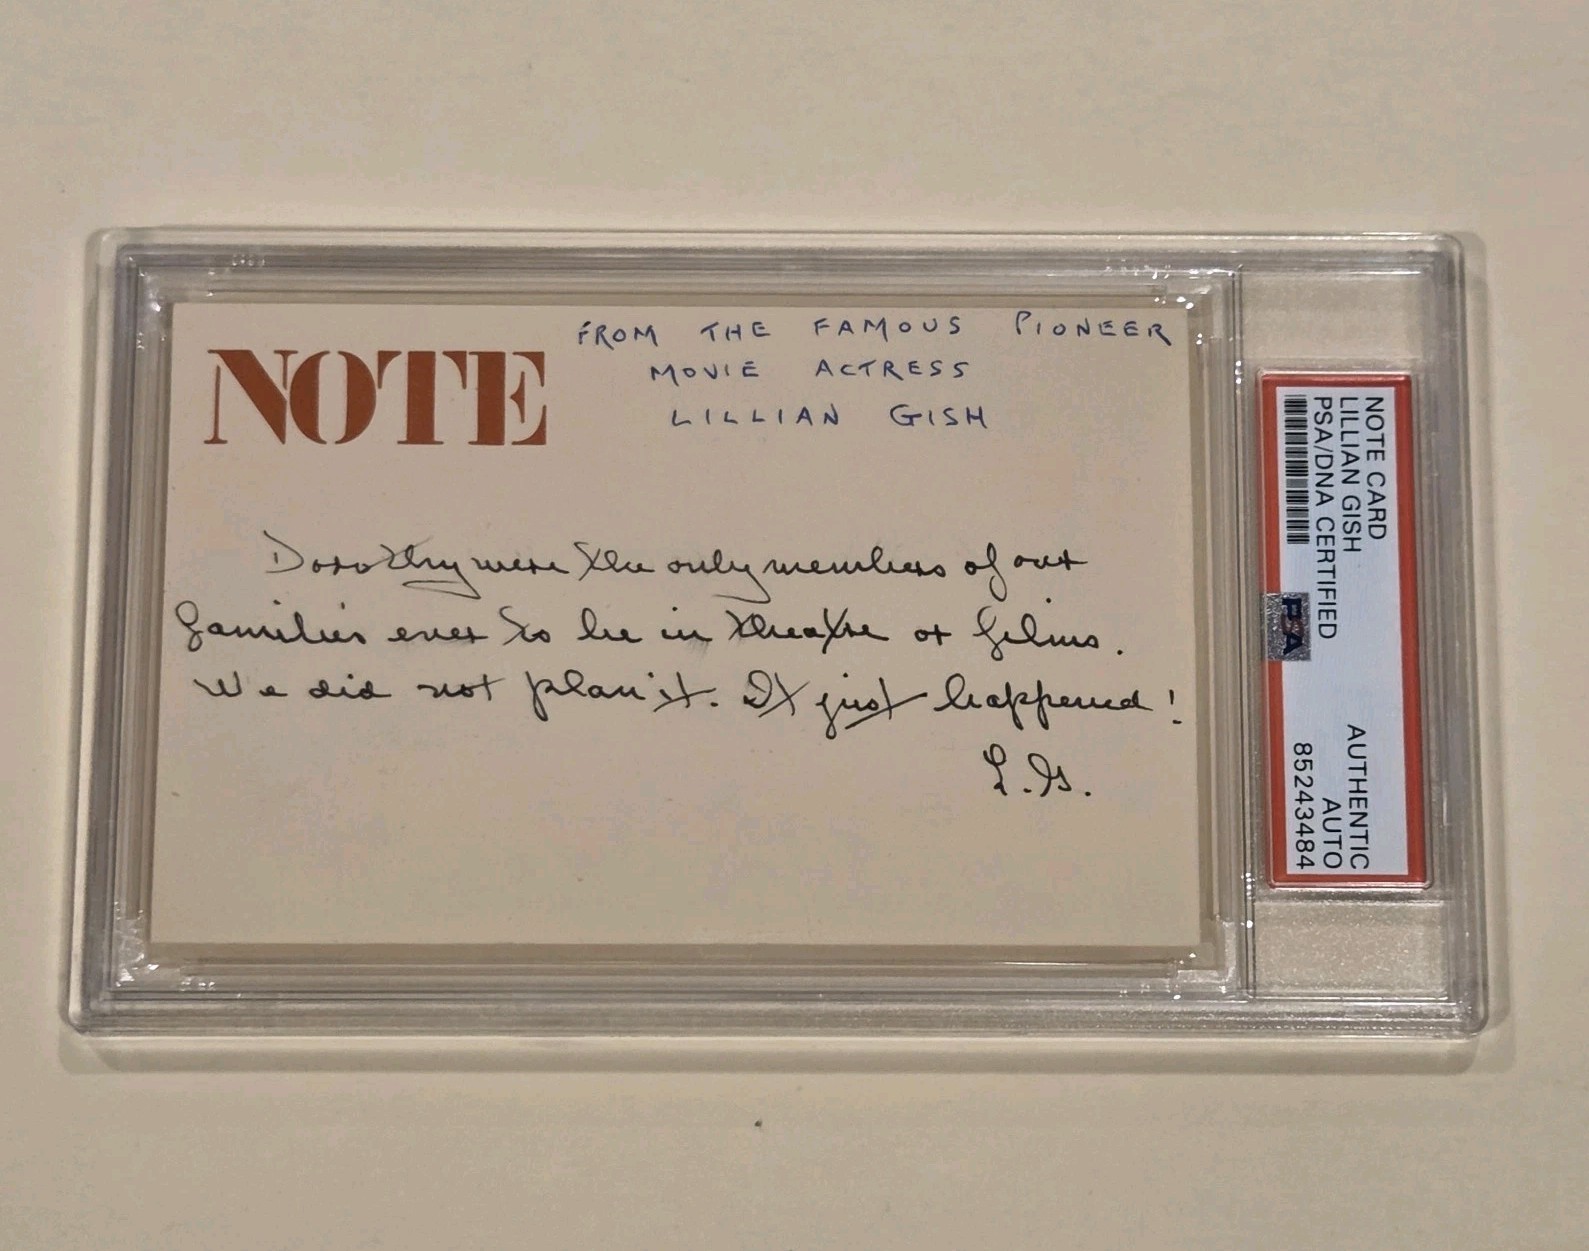 NOTE
FROM THE FAMOUS PIONEER
MOVIE ACTRESS
LILLIAN GISH
Dorothy were the only members of our
families ever to be in theatre or films.
We did not plan it. It just happened!
L.G.
NOTE CARD
LILLIAN GISH
PSA/DNA CERTIFIED
AUTHENTIC
AUTO
85243484
PSA